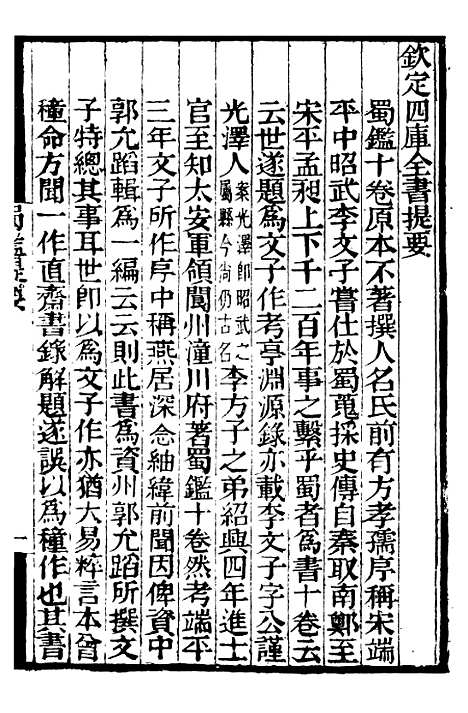 欽定四庫全書提要
蜀鑑十卷原本不著撰人名氏前有方孝孺序稱宋端
平中昭武李文子嘗仕於蜀蒐採史傳自秦取南鄭至
宋平孟昶上下千二百年事之繫乎蜀者為書十卷云
云世遂題為文子作考亭淵源錄亦載李文子字公謹
光澤人案光澤即昭武之屬縣今尚仍古名李方子之弟紹興四年進士
官至知太安軍領閬州潼川府著蜀鑑十卷然考端平
三年文子所作序中稱燕居深念紬緯前聞因俾資中
郭允蹈輯為一編云云則此書為資州郭允蹈所撰文
子特總其事耳世即以為文子作亦猶大易粹言本曾
穜命方聞一作直齋書錄解題遂誤以為穜作也其書
蜀鑑提要
一